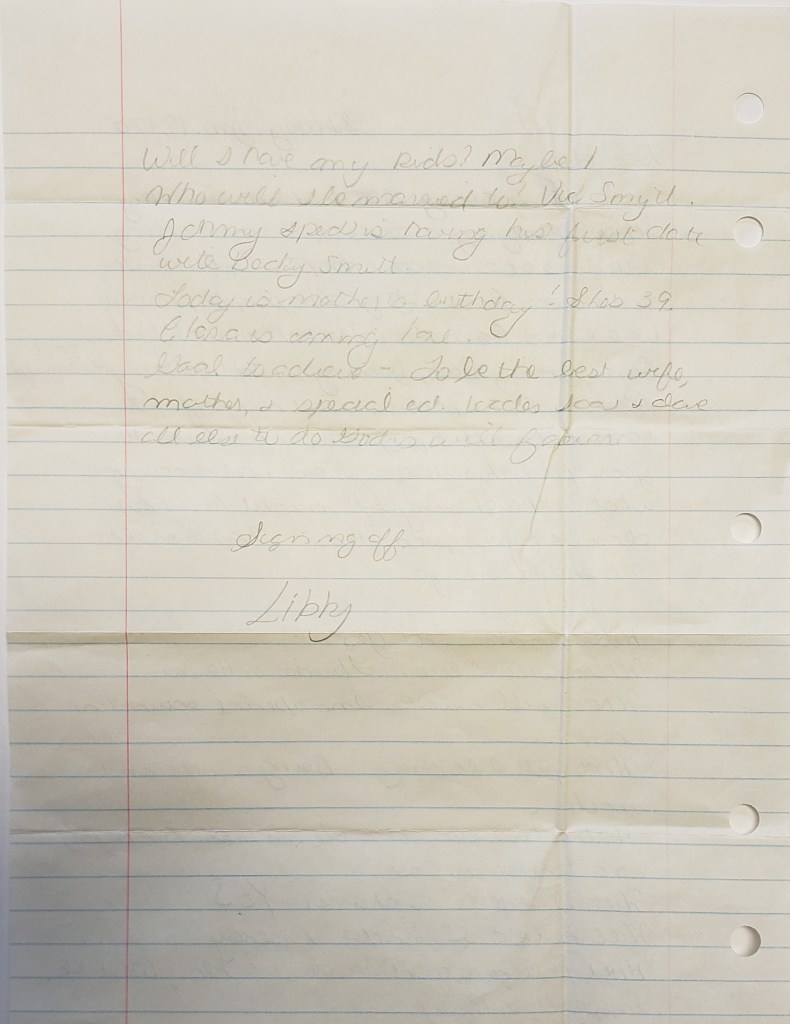 Will I have any kids? Maybe 1
Who will I be married to? Vic Smith.
Johnny is having his first date
with Becky Smith.
Today is mother's birthday! She's 39.
is coming
Goal to achieve - To be the best wife,
mother, & special ed. teacher &
all else to do God's will
Signing off
Libby